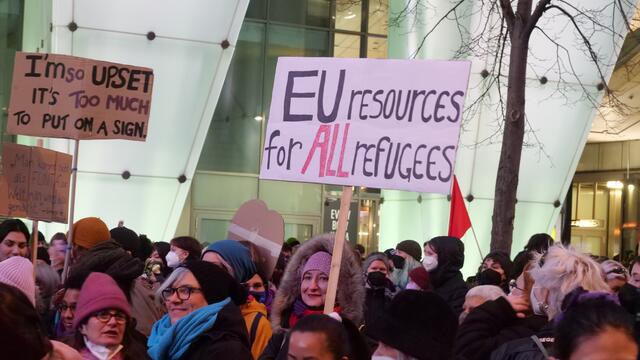 I'm so UPSET
IT'S TOO MUCH
TO PUT ON A SIGN.
EU RESOURCES
for ALL REFUGEES